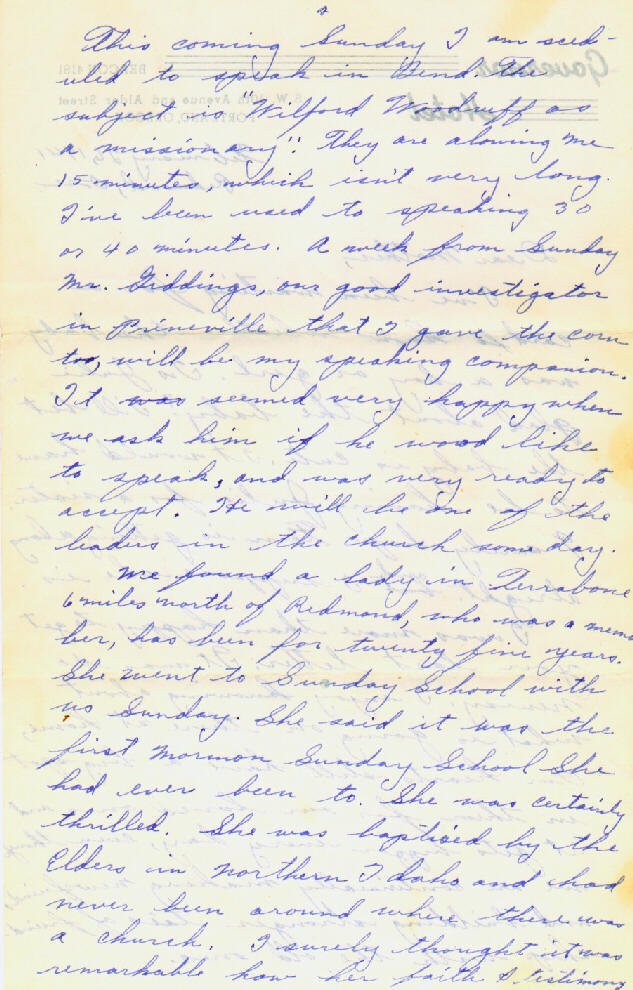 This coming Sunday I am sced-
uled to speak in Bend the
subject is "Wilford Woodruff as
a missionary". They are alowing me
15 minutes, which isn't very long.
I've been used to speaking 30
or 40 minutes. A week from Sunday
Mr. Giddings, our good investigator
in Prineville that I gave the corn
too, will be my speaking companion.
It was seemed very happy when
we ask him if he wood like
to speak, and was very ready to
accept. He will be one of the
leaders in the church some day.
We found a lady in Terrabone
6 miles north of Redmond, who was a mem
ber, has been for twenty five years.
She went to Sunday School with
us Sunday. She said it was the
first Mormon Sunday School She
had ever been to. She was certainly
thrilled. She was baptised by the
Elders in northern Idaho and had
never been around where there was
a church. I surely thought it was
remarkable how her faith & testimony